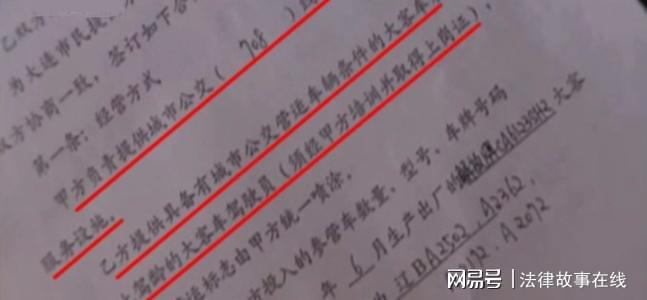 为大连市民
双方协商一致，签订如下合
第一条：经营方式
甲方负责提供城市公交（ 708 ）
服务设施。
乙方提供具备有城市公交营运车辆条件的大客车
驾龄的大客车驾驶员（须经甲方培训并取得上岗证），
运标志由甲方统一喷涂。
方投入的参营车数量、型号、车牌号码
年 6 月生产出厂的 大客
辽BA2502 A2362，
A2092
网易号 | 法律故事在线